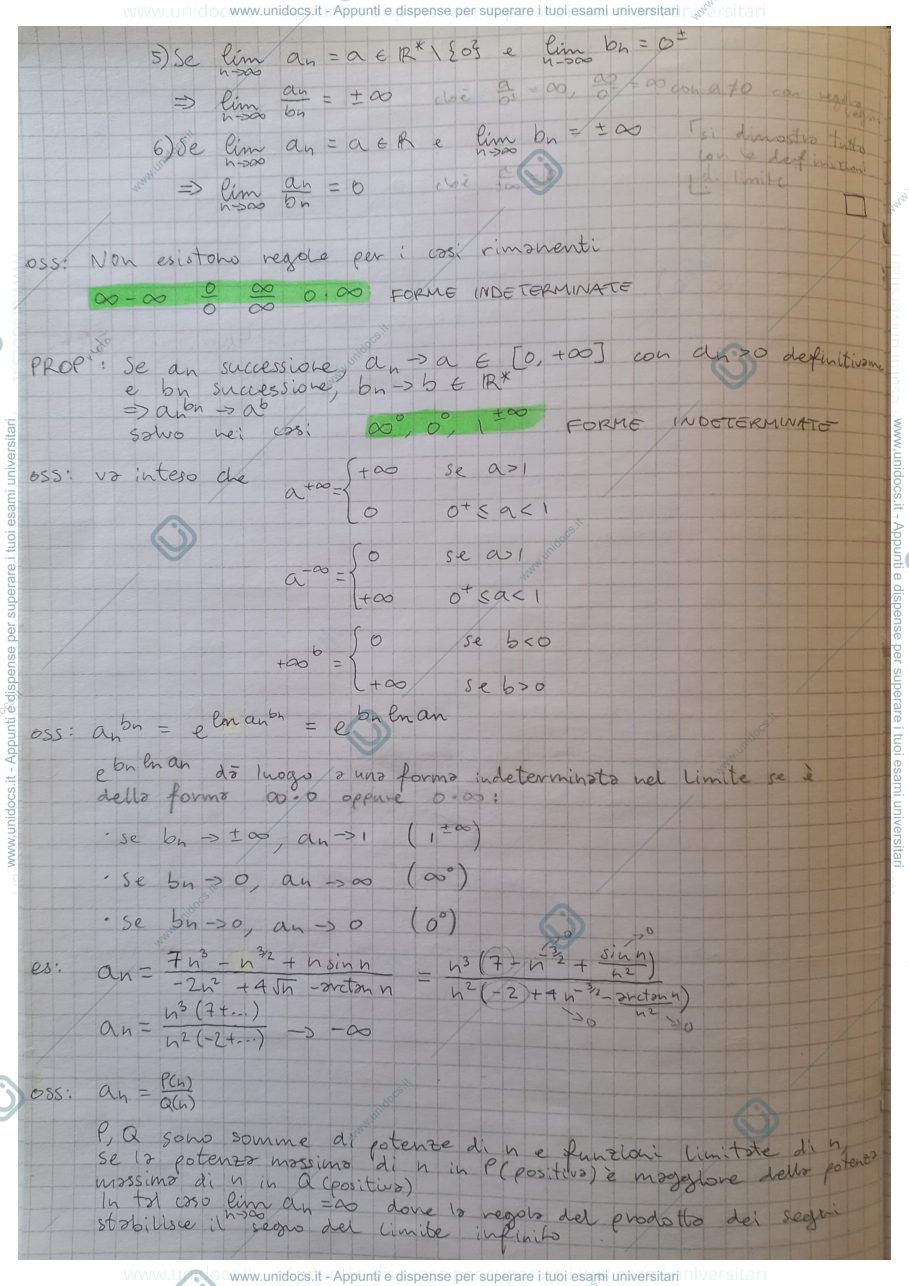 www.unidocs.it - Appunti e dispense per superare i tuoi esami universitari
5) Se lim n→∞ an = a ∈ ℝ* \ {0} e lim n→∞ bn = 0±
⇒ lim n→∞ an/bn = ±∞ cioè a/0± = ∞, ∞/0± = ∞ con a≠0 con regola segni
6) Se lim n→∞ an = a ∈ ℝ e lim n→∞ bn = ±∞ si dimostra tutto
con le definizioni
⇒ lim n→∞ an/bn = 0 cioè di limite
oss: Non esistono regole per i casi rimanenti
∞-∞ 0/0 ∞/∞ 0·∞ FORME INDETERMINATE
PROP: Se an successione, an → a ∈ [0, +∞] con an>0 definitivame
e bn successione, bn → b ∈ ℝ*
⇒ an^bn → a^b
salvo nei casi ∞^0, 0^0, 1^±∞ FORME INDETERMINATE
oss: va inteso che a^+∞ = { +∞ se a>1
0 0+ ≤ a < 1
a^-∞ = { 0 se a>1
+∞ 0+ ≤ a < 1
+∞^b = { 0 se b<0
+∞ se b>0
oss: an^bn = e^(ln an^bn) = e^(bn ln an)
e^(bn ln an) dà luogo a una forma indeterminata nel limite se è
della forma ∞·0 oppure 0·∞:
· se bn → ±∞, an → 1 (1^±∞)
· se bn → 0, an → ∞ (∞^0)
· se bn → 0, an → 0 (0^0)
es: an = (7n^3 - n^3/2 + n sin n)/(-2n^2 + 4√n - arctan n) = n^3(7 - n^-3/2 + sin n/n^2)/n^2(-2 + 4n^-3/2 - arctan n/n^2) →0 →0 →0 →0
an = n^3(7+...)/n^2(-2+...) → -∞
oss: an = P(n)/Q(n)
P, Q sono somme di potenze di n e funzioni limitate di n,
se la potenza massima di n in P (positiva) è maggiore della potenza
massima di n in Q (positiva)
In tal caso lim n→∞ an = ∞ dove la regola del prodotto dei segni
stabilisce il segno del limite infinito
www.unidocs.it - Appunti e dispense per superare i tuoi esami universitari